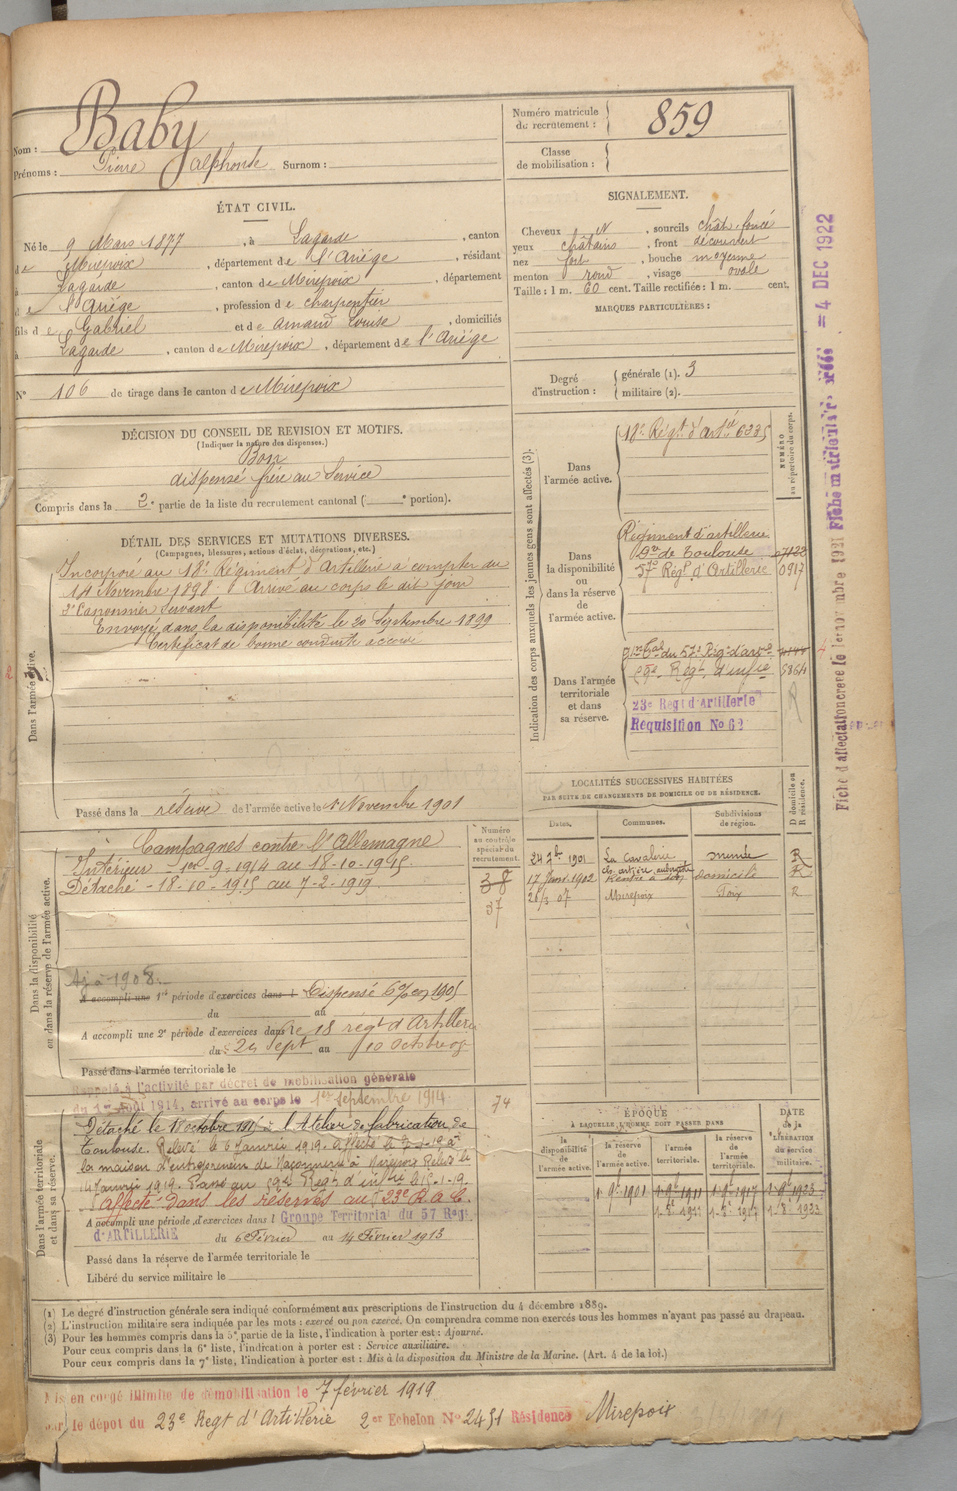 Nom : Baby
Prénoms : Pierre Alphonse Surnom :
Numéro matricule du recrutement : 859
Classe de mobilisation :
ÉTAT CIVIL.
Né le 9 Mars 1877, à Lagarde, canton
de Mirepoix, département de l'Ariège, résidant
à Lagarde, canton de Mirepoix, département
de l'Ariège, profession de charpentier
fils de Gabriel et de Arnaud Louise, domiciliés
à Lagarde, canton de Mirepoix, département de l'Ariège
N° 106 de tirage dans le canton de Mirepoix
SIGNALEMENT.
Cheveux N, sourcils chât. foncé
yeux châtains, front découvert
nez fort, bouche moyenne
menton rond, visage ovale
Taille : 1 m. 60 cent. Taille rectifiée : 1 m. cent.
MARQUES PARTICULIÈRES :
Degré d'instruction : générale (1). 3
militaire (2).
DÉCISION DU CONSEIL DE REVISION ET MOTIFS.
(Indiquer la nature des dispenses.)
Bon
dispensé frère au Service
Compris dans la 2e partie de la liste du recrutement cantonal ( e portion).
DÉTAIL DES SERVICES ET MUTATIONS DIVERSES.
(Campagnes, blessures, actions d'éclat, décorations, etc.)
Dans l'armée active.
Incorporé au 18e Régiment d'Artillerie à compter du
14 Novembre 1898. Arrivé au corps le dit jour
2e Canonnier Servant
Envoyé dans la disponibilité le 20 Septembre 1899
Certificat de bonne conduite accordé
Passé dans la réserve de l'armée active le 1er Novembre 1901
Indication des corps auxquels les jeunes gens sont affectés (3).
NUMÉRO au répertoire du corps.
Dans l'armée active.
18e Régt d'Artie 6335
Dans la disponibilité ou dans la réserve de l'armée active.
Régiment d'artillerie
de Toulouse 07122
57e Régt d'Artillerie 0917
Dans l'armée territoriale et dans sa réserve.
du 57e Régt d'art
59e Régt d'infie 5864
23e Regt d'Artillerie
Requisition No 62
R
LOCALITÉS SUCCESSIVES HABITÉES
PAR SUITE DE CHANGEMENTS DE DOMICILE OU DE RÉSIDENCE.
Dates. Communes. Subdivisions de région. D domicile ou R résidence.
24 7b 1901 La Cavalerie R
17 Janv. 1902 Rentré à son domicile R
26/3 07 Mirepoix Foix R
Dans la disponibilité ou dans la réserve de l'armée active.
Numéro au contrôle spécial du recrutement.
Campagnes contre l'Allemagne
Intérieur - 1er-9-1914 au 18-10-1915
Détaché - 18-10-1915 au 7-2-1919
38
37
Aj à 1908.
A accompli une 1re période d'exercices dans l Dispensé en 1905
du au
A accompli une 2e période d'exercices dans le 18 régt d'Artillerie
du 24 Sept au 10 Octobre 08
Passé dans l'armée territoriale le
Rappelé à l'activité par décret de mobilisation générale
du 1er Août 1914, arrivé au corps le 1er septembre 1914
74
Dans l'armée territoriale et dans sa réserve.
Détaché le 18 octobre 1915 à l'Atelier de fabrication de
Toulouse. Relevé le 6 Janvier 1919. affecté le 7-1-19 à
la maison d'entrepreneur de Maçonnerie à Mirepoix Relevé le
14 Janvier 1919. Passé au 59e Régt d'infie le 15-1-19.
Affecté dans les réserves au 23e R.A.C.
A accompli une période d'exercices dans l Groupe Territorial du 57 Regt
d'ARTILLERIE du 6 Février au 14 Février 1913
Passé dans la réserve de l'armée territoriale le
Libéré du service militaire le
ÉPOQUE
À LAQUELLE L'HOMME DOIT PASSER DANS
la disponibilité de l'armée active. la réserve de l'armée active. l'armée territoriale. la réserve de l'armée territoriale.
DATE de la LIBÉRATION du service militaire.
1-9b 1901 1-9b 1911 1-9b 1917 1-9b 1923
1-8b 1912 1-8b 1917 1-8b 1923
(1) Le degré d'instruction générale sera indiqué conformément aux prescriptions de l'instruction du 4 décembre 1889.
(2) L'instruction militaire sera indiquée par les mots : exercé ou non exercé. On comprendra comme non exercés tous les hommes n'ayant pas passé au drapeau.
(3) Pour les hommes compris dans la 5e partie de la liste, l'indication à porter est : Ajourné.
Pour ceux compris dans la 6e liste, l'indication à porter est : Service auxiliaire.
Pour ceux compris dans la 7e liste, l'indication à porter est : Mis à la disposition du Ministre de la Marine. (Art. 4 de la loi.)
Mis en congé illimité de démobilisation le 7 février 1919
par le dépot du 23e Regt d'Artillerie 2er Echelon No 2431 Résidence Mirepoix
Fiche d'affectation créée le 1er novembre 1921 Fiche matriculaire créée = 4 DEC 1922